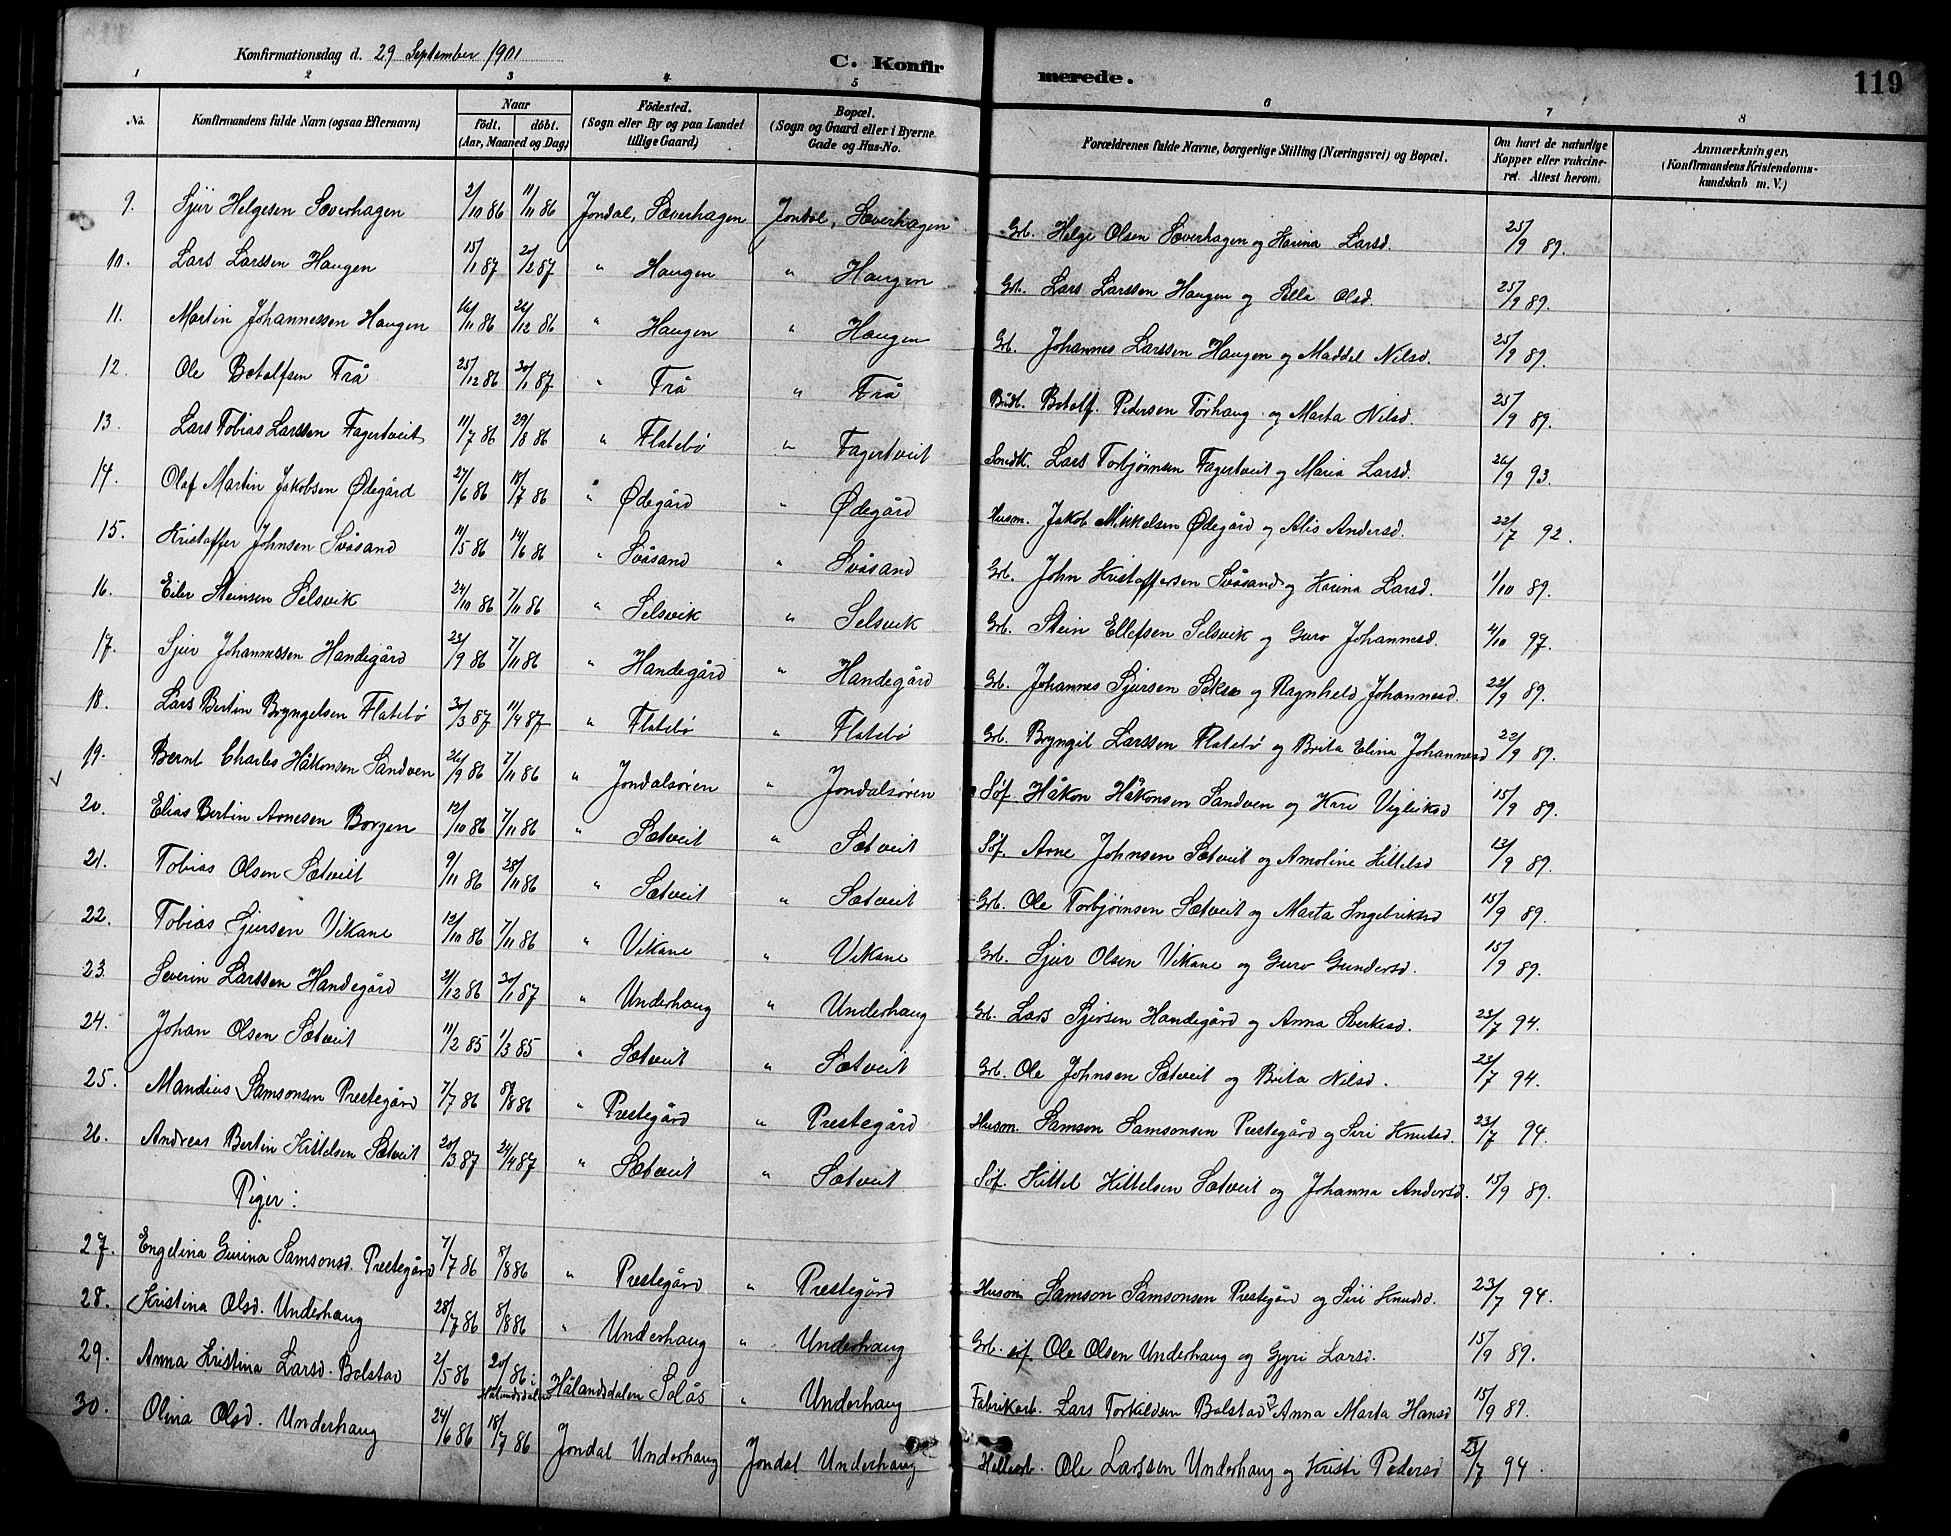 Konfirmationsdag d. 29 September 1901
C. Konfirmerede.
119
1 2 3 4 5 6 7 8
No. Konfirmandens fulde Navn (ogsaa Efternavn) Naar født. døbt. (Aar, Maaned og Dag) Födested. (Sogn eller By og paa Landet tillige Gaard) Bopæl. (Sogn og Gaard eller i Byerne Gade og Hus-No. Forældrenes fulde Navne, borgerlige Stilling (Næringsvei) og Bopæl. Om havt de naturlige Kopper eller vakcineret. Attest herom. Anmærkninger. (Konfirmandens Kristendomskundskab m. V.)
9. Sjur Helgesen Sæverhagen 2/10 86 11/11 86 Jondal, Sæverhagen Jondal, Sæverhagen Grb. Helge Olsen Sæverhagen og Karina Larsd. 25/9 89.
10. Lars Larssen Haugen 15/1 87 20/2 87 " Haugen " Haugen Grb. Lars Larssen Haugen og Olsd. 25/9 89.
11. Martin Johannessen Haugen 16/11 86 26/12 86 " Haugen " Haugen Grb. Johannes Larssen Haugen og Maddel Nilsd. 25/9 89.
12. Ole Botolfsen Trå 25/12 86 20/1 87 " Trå " Trå Botolf. Pedersen Torhaug og Marta Nilsd. 25/9 89.
13. Lars Tobias Larssen Fagertveit 11/7 86 29/8 86 " Flatebø " Fagertveit Lars Torbjørnsen Fagertveit og Maria Larsd. 26/9 93.
14. Olaf Martin Jakobsen Ødegård 27/6 86 18/7 86 " Ødegård " Ødegård Husm. Jakob Mikkelsen Ødegård og Alis Andersd. 22/7 92.
15. Kristoffer Johnsen Svåsand 11/5 86 14/6 86 " Svåsand " Svåsand Grb. John Kristoffersen Svåsand og Karina Larsd. 1/10 89.
16. Eiler Steinsen Selsvik 24/10 86 7/11 86 " Selsvik " Selsvik Grb. Stein Ellefsen Selsvik og Guro Johannesd. 4/10 97.
17. Sjur Johannessen Handegård 23/9 86 7/11 86 " Handegård " Handegård Grb. Johannes Sjursen og Ragnheld Johannesd. 22/9 89.
18. Lars Bertin Bryngelsen Flatebø 30/3 87 11/4 87 " Flatebø " Flatebø Grb. Bryngel Larssen Flatebø og Brita Elina Johannesd 22/9 89.
19. Bernt Charles Håkonsen Sandven 26/9 86 7/11 86 " Jondalsøren " Jondalsøren Søf. Håkon Håkonsen Sandven og Kari Vigleiksd 15/9 89.
20. Elias Bertin Arnesen Borgen 12/10 86 7/11 86 " Sætveit " Sætveit Søf. Arne Johnsen Sætveit og Amoline Kittelsd 13/9 89.
21. Tobias Olsen Sætveit 9/11 86 28/11 86 " Sætveit " Sætveit Grb. Ole Torbjørnsen Sætveit og Marta Ingebriktsd 15/9 89.
22. Tobias Sjursen Vikane 12/10 86 7/11 86 " Vikane " Vikane Grb. Sjur Olsen Vikane og Guro Gundersd. 15/9 89.
23. Severin Larssen Handegård 21/12 86 20/1 87 " Underhaug " Underhaug Grb. Lars Sjursen Handegård og Anna 23/7 94.
24. Johan Olsen Sætveit 11/2 85 1/3 85 " Sætveit " Sætveit Grb. Ole Johnsen Sætveit og Brita Nilsd. 23/7 94.
25. Mandius Samsonsen Prestegård 7/7 86 8/8 86 " Prestegård " Prestegård Husm. Samson Samsonsen Prestegård og Siri Knutsd. 23/7 94.
26. Andreas Bertin Kittelsen Sætveit 20/3 87 24/4 87 " Sætveit " Sætveit Søf. Kittel Kittelsen Sætveit og Johanna Andersd. 15/9 89.
Piger:
27. Engelina Gurina Samsonsd. Prestegård 7/7 86 8/8 86 " Prestegård " Prestegård Husm Samson Samsonsen Prestegård og Siri Knudsd. 23/7 94.
28. Kristina Olsd. Underhaug 28/7 86 8/8 86 " Underhaug " Underhaug Grb. Ole Olsen Underhaug og Gyri Larsd. 15/9 89.
29. Anna Kristina Larsd. Bolstad 2/5 86 20/ 86 i Hålandsdalen Hålandsdalen Solås " Underhaug Fabrikarb. Lars Torkildsen Bolstad & Anna Marta Hansd 15/9 89.
30. Olina Olsd. Underhaug 24/6 86 18/7 86 Jondal Underhaug Jondal Underhaug Ole Larssen Underhaug og Kristi Pedersd 23/7 94.